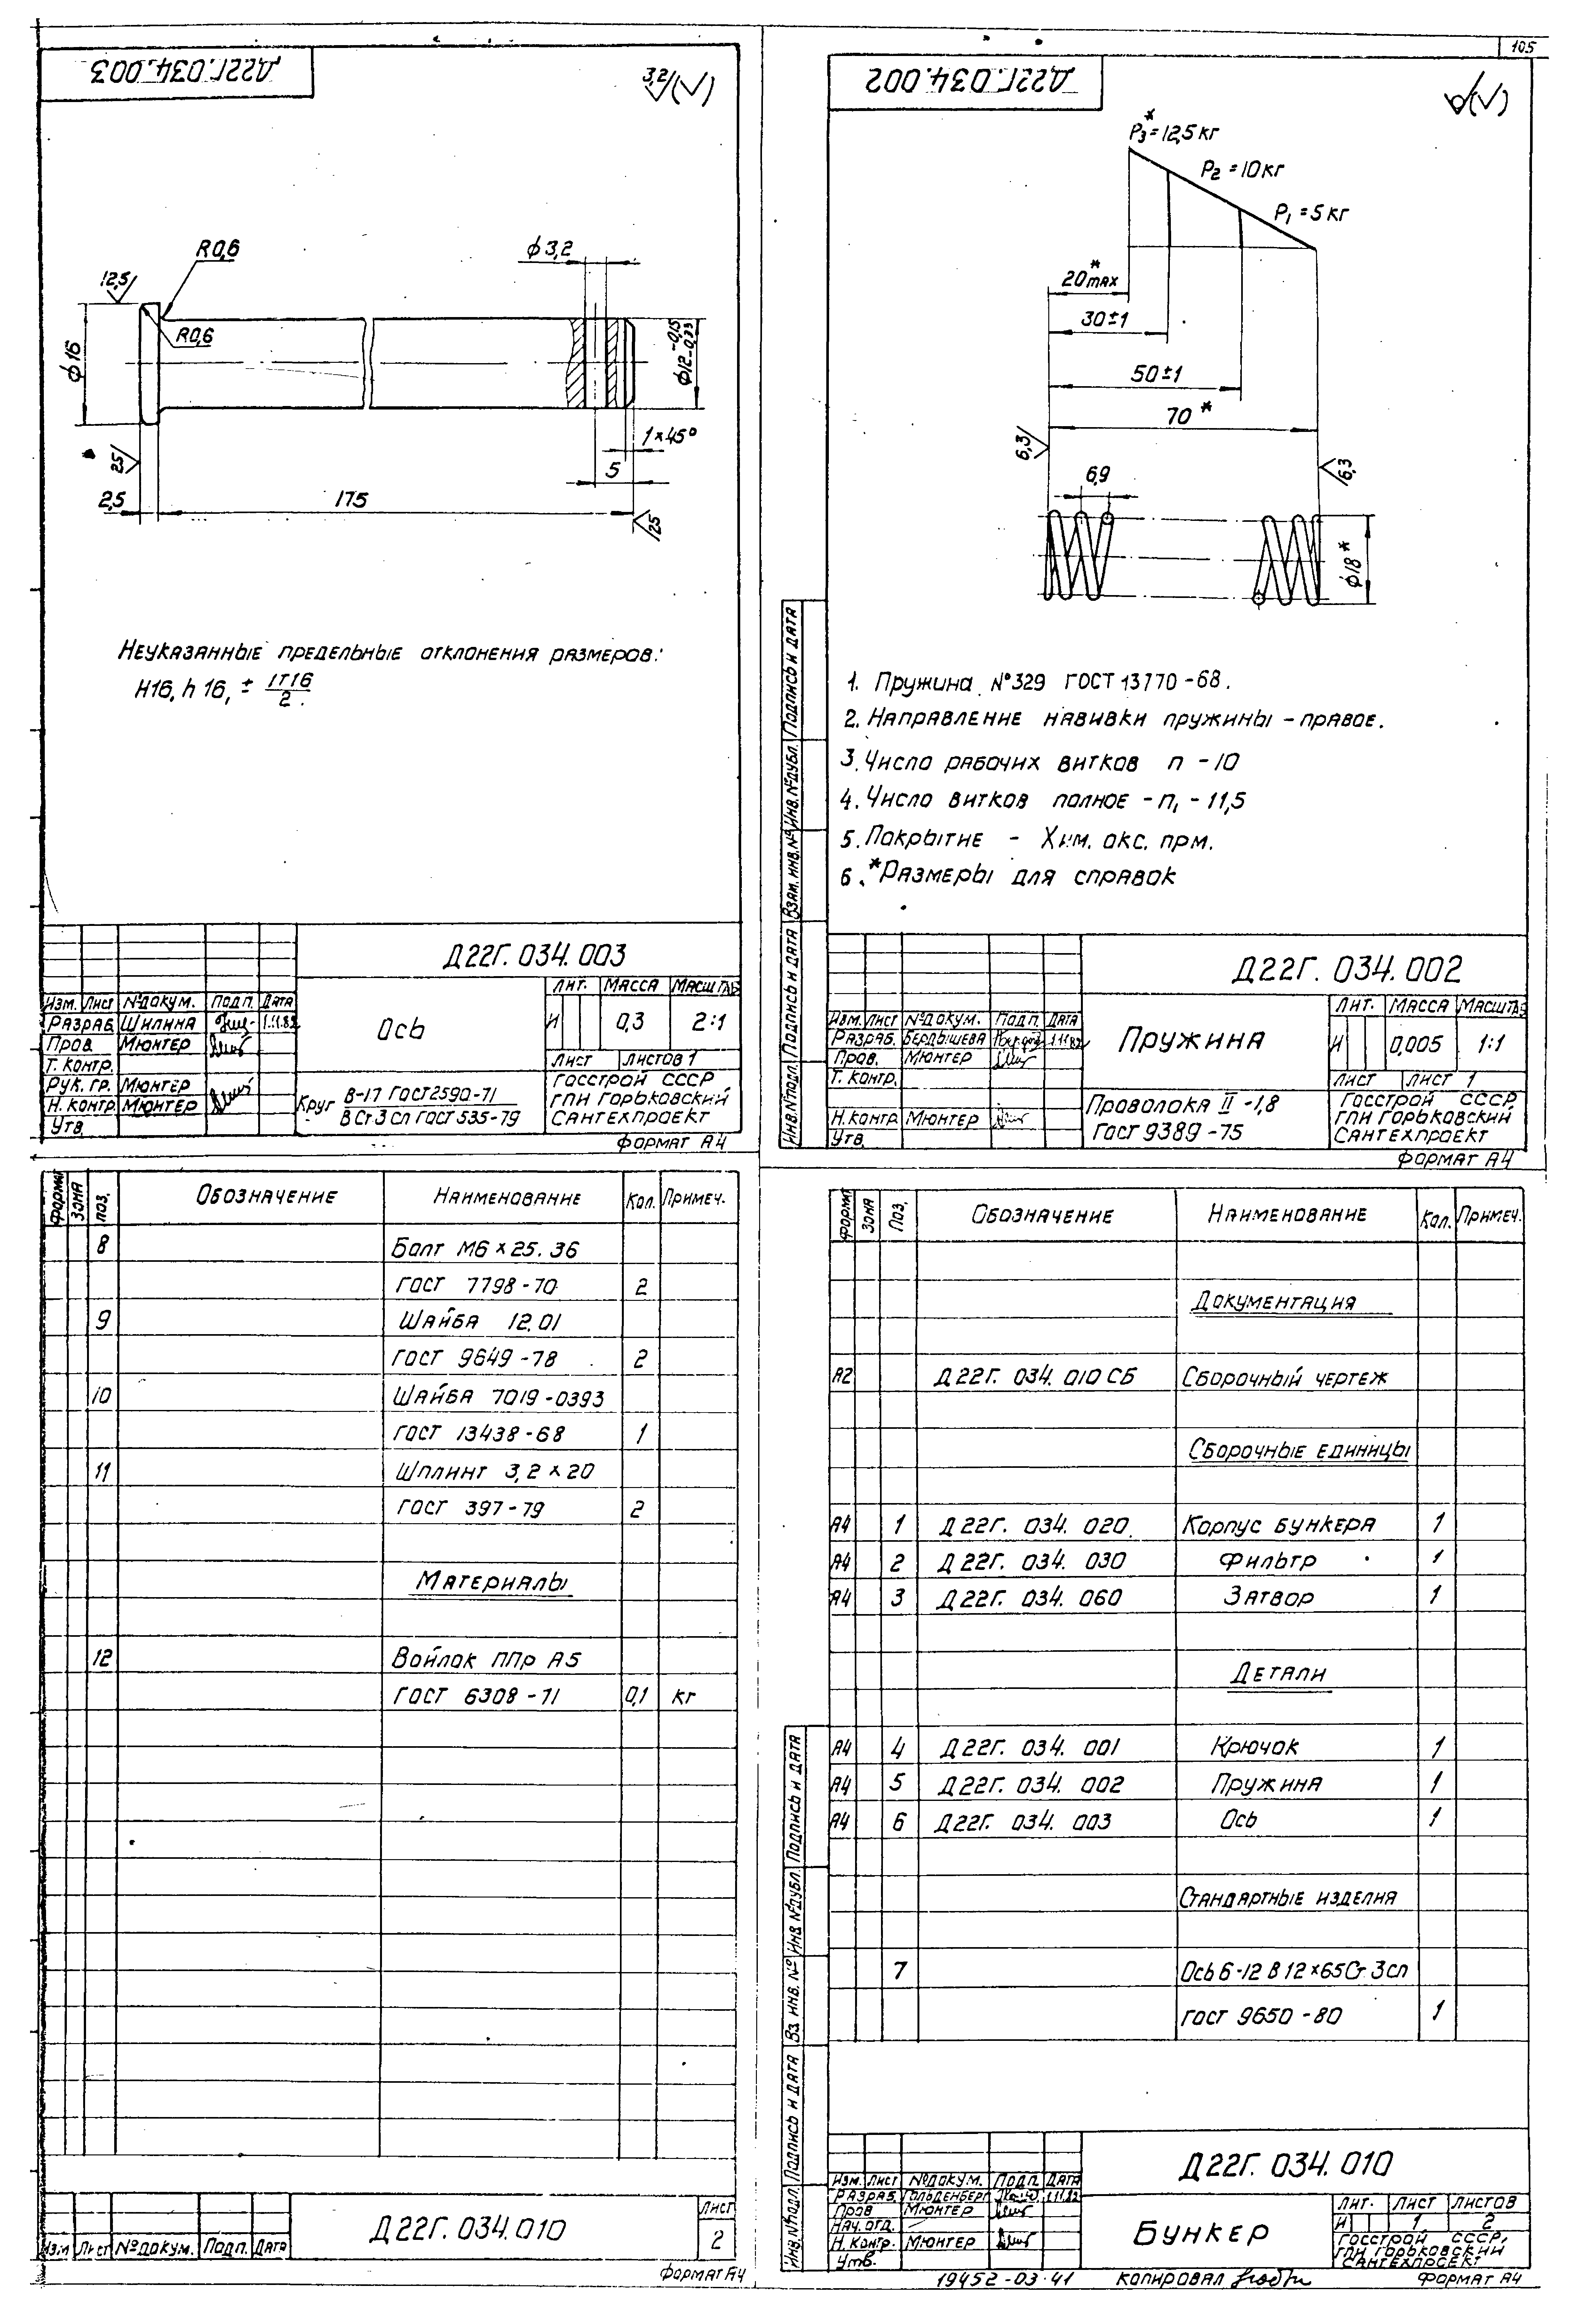 105
Д22Г.034.003
3,2 (√)
R0,6
ϕ3,2
12,5
R0,6
ϕ16
ϕ12 -0,15 -0,33
1×45°
25
5
2,5
175
25
Неуказанные предельные отклонения размеров:
H16, h16, ± IT16/2.
Д22Г.034.003
Лит. Масса Масштаб
Изм. Лист №докум. Подп. Дата
Разраб. Шилина 1.11.82
Ось
И 0,3 2:1
Пров. Мюнтер
Т. контр.
Лист Листов 1
Рук. гр. Мюнтер
Н. контр. Мюнтер
Утв.
Круг В-17 ГОСТ 2590-71
ВСт3сп ГОСТ 535-79
Госстрой СССР
ГПИ Горьковский
Сантехпроект
Формат А4
Д22Г.034.002
(√)
P3* = 12,5 кг
P2 = 10 кг
P1 = 5 кг
20* max
30±1
50±1
70*
6,3
6,3
6,9
ϕ18*
1. Пружина №329 ГОСТ 13770-68.
2. Направление навивки пружины - правое.
3. Число рабочих витков n - 10
4. Число витков полное - n1 - 11,5
5. Покрытие - Хим. окс. прм.
6. *Размеры для справок
Инв.№подл. Подпись и дата Взам. инв.№ Инв.№дубл. Подпись и дата
Д22Г.034.002
Лит. Масса Масштаб
Изм. Лист №докум. Подп. Дата
Разраб. Бердышева 1.11.82
Пружина
И 0,005 1:1
Пров. Мюнтер
Т. контр.
Лист Лист 1
Н. контр. Мюнтер
Утв.
Проволока II-1,8
ГОСТ 9389-75
Госстрой СССР
ГПИ Горьковский
Сантехпроект
Формат А4
Формат Зона Поз. Обозначение Наименование Кол. Примеч.
8 Болт М6×25.36
ГОСТ 7798-70 2
9 Шайба 12.01
ГОСТ 9649-78 2
10 Шайба 7019-0393
ГОСТ 13438-68 1
11 Шплинт 3,2×20
ГОСТ 397-79 2
Материалы
12 Войлок ППр А5
ГОСТ 6308-71 0,1 кг
Д22Г.034.010
Лист
2
Изм Лист №докум. Подп. Дата
Формат А4
Формат Зона Поз. Обозначение Наименование Кол. Примеч.
Документация
А2 Д22Г.034.010СБ Сборочный чертеж
Сборочные единицы
А4 1 Д22Г.034.020 Корпус бункера 1
А4 2 Д22Г.034.030 Фильтр 1
А4 3 Д22Г.034.060 Затвор 1
Детали
А4 4 Д22Г.034.001 Крючок 1
А4 5 Д22Г.034.002 Пружина 1
А4 6 Д22Г.034.003 Ось 1
Стандартные изделия
7 Ось 6-12 В12×65 Ст3сп
ГОСТ 9650-80 1
Инв.№подл. Подпись и дата Вз. инв. № Инв №дубл. Подпись и дата
Д22Г.034.010
Изм. Лист №докум. Подп. Дата
Разраб. Гольденберг 1.11.82
Пров Мюнтер
Нач. отд.
Н. контр. Мюнтер
Утв.
Бункер
Лит. Лист Листов
И 1 2
Госстрой СССР,
ГПИ Горьковский
Сантехпроект
19452-03 41 Копировал Формат А4